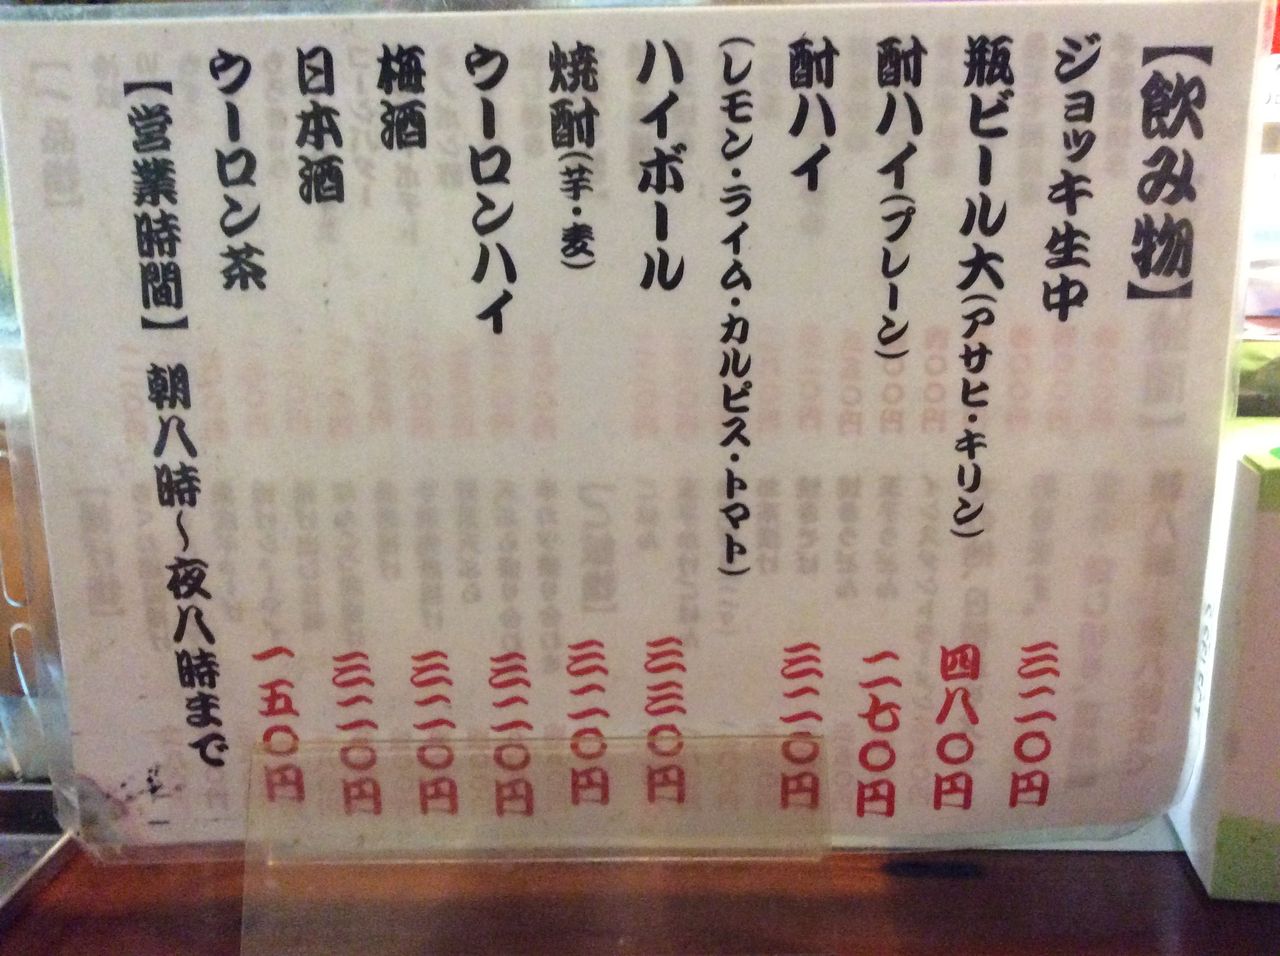 【飲み物】
ジョッキ生中 三二〇円
瓶ビール大(アサヒ・キリン) 四八〇円
酎ハイ(プレーン) 二七〇円
酎ハイ 三二〇円
(レモン・ライム・カルピス・トマト)
ハイボール 三三〇円
焼酎(芋・麦) 三二〇円
ウーロンハイ 三二〇円
梅酒 三二〇円
日本酒 三二〇円
ウーロン茶 一五〇円
【営業時間】 朝八時〜夜八時まで